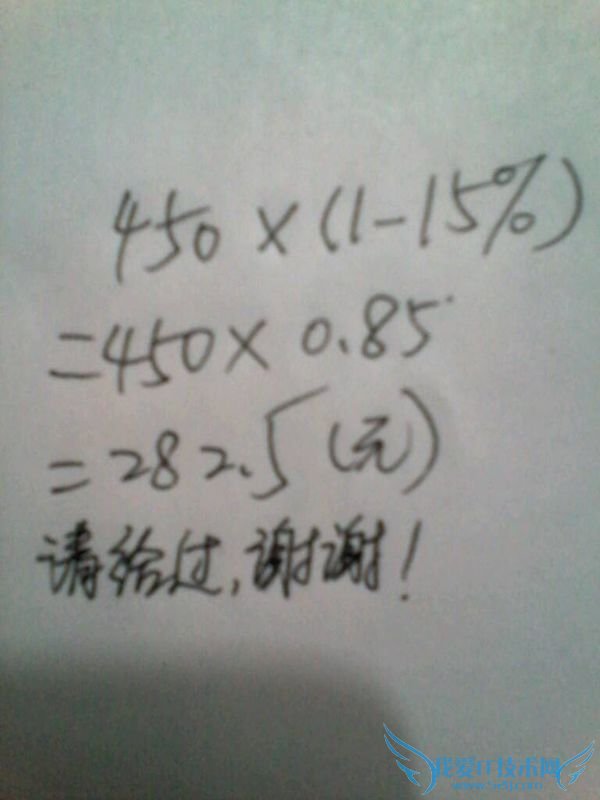 450×(1-15%)
=450×0.85
=282.5(元)
请给过,谢谢!
我爱IT技术网